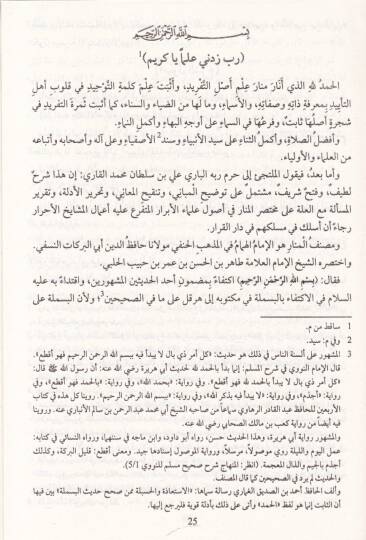 بسم الله الرحمن الرحيم
(رب زدني علماً يا كريم)1
الحمدُ للهِ الذي أنَارَ منارَ عِلْمِ أَصْلِ التَّفْرِيدِ، وأثبَتَ عِلْمَ كلمةِ التَّوْحِيدِ في قلوبِ أهلِ
التأييدِ بمعرفةِ ذاتِهِ وصفاتِهِ، والأسماءِ، وما لَهَا من الضياء والسناء، كما أثبتَ ثمرةَ التفريدِ في
شجرةٍ أصلُها ثابتٌ، وفرعُها في السماءِ على أوجهِ البهاءِ وأكملِ النماءِ.
وأفضلُ الصلاةِ، وأكملُ الثناءِ على سيدِ الأنبياءِ وسند2 الأصفياءِ وعلى آله وأصحابه وأتباعه
من العلماء والأولياء.
وأما بعدُ، فيقول الملتجئ إلى حرم ربه الباري علي بن سلطان محمد القاري: إن هذا شرحٌ
لطيفٌ، وفتحٌ شريفٌ، مشتملٌ على توضيح المباني، وتنقيح المعاني، وتحرير الأدلة، وتقرير
المسألة مع العلة على مختصر المنار في أصول علماء الأبرار المتفرع عليه أعمال المشايخ الأحرار
رجاءً أن أسلك في مسلكهم في دار القرار.
ومصنفُ المنارِ هو الإمامُ الهمامُ في المذهبِ الحنفي مولانا حافظ الدين أبي البركات النسفي.
واختصره الشيخ الإمام العلامة طاهر بن الحسن بن عمر بن حبيب الحلبي.
فقال: (بِسْمِ اللهِ الرَّحْمَنِ الرَّحِيمِ) اكتفاءً بمضمونِ أحد الحديثين المشهورين، واقتداءً به عليه
السلام في الاكتفاء بالبسملة في مكتوبه إلى هرقل على ما في الصحيحين3؛ ولأن البسملة على
1 ساقط من م.
2 وفي م: سيد.
3 المشهور على ألسنة الناس في ذلك هو حديث: «كل أمر ذي بال لا يبدأ فيه ببسم الله الرحمن الرحيم فهو أقطع».
قال الإمام النووي في شرح المسلم: إنما بدأ بالحمد لله لحديث أبي هريرة رضي الله عنه: أن رسول الله ﷺ قال:
«كل أمر ذي بال لا يبدأ بالحمد لله فهو أقطع». وفي رواية: «بحمد الله»، وفي رواية: «بالحمد فهو أقطع»، وفي
رواية: «أجذم»، وفي رواية: «لا يبدأ فيه بذكر الله»، وفي رواية: «ببسم الله الرحمن الرحيم». روينا كل هذه في كتاب
الأربعين للحافظ عبد القادر الرهاوي سماعاً من صاحبه الشيخ أبي محمد عبد الرحمن بن سالم الأنباري عنه. وروينا
فيه أيضاً من رواية كعب بن مالك الصحابي رضي الله عنه.
والمشهور رواية أبي هريرة، وهذا الحديث حسن، رواه أبو داود، وابن ماجه في سننهما، ورواه النسائي في كتابه:
عمل اليوم والليلة روي موصولاً، مرسلاً، ورواية الموصول إسنادها جيد. ومعنى أقطع: قليل البركة، وكذلك
أجذم بالجيم والذال المعجمة. (انظر: المنهاج شرح صحيح مسلم للنووي 5/1)
والحديث لم يرد في الصحيحين كما قال المصنف.
وألف الحافظ أحمد بن الصديق الغماري رسالة سماها: «الاستعاذة والحسبلة ممن صحح حديث البسملة» بين فيها
أن الثابت إنما هو لفظ «الحمد» وأتى على ذلك بأدلة قوية فليرجع إليها.
25